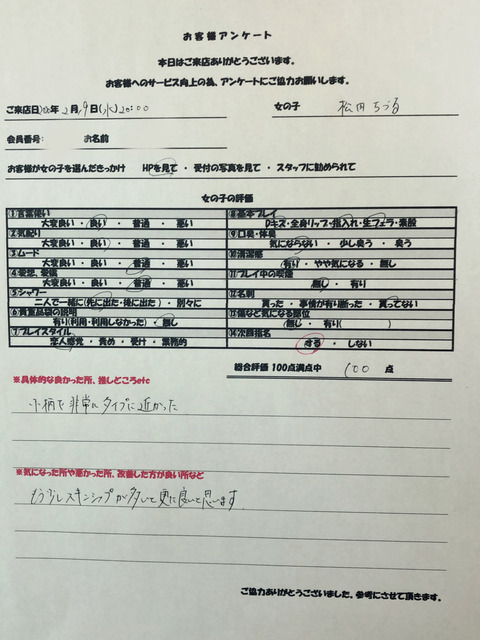 お客様アンケート
本日はご来店ありがとうございます。
お客様へのサービス向上の為、アンケートにご協力お願いします。
ご来店日 年2月19日(水)20:00 女の子 松内ちづる
会員番号: お名前
お客様が女の子を選んだきっかけ HPを見て ・ 受付の写真を見て ・ スタッフに勧められて
女の子の評価
①言葉使い ⑧基本プレイ
大変良い ・ 良い ・ 普通 ・ 悪い Dキス・全身リップ・指入れ・生フェラ・素股
②気配り ⑨口臭・体臭
大変良い ・ 良い ・ 普通 ・ 悪い 気にならない ・ 少し臭う ・ 臭う
③ムード ⑩清潔感
大変良い ・ 良い ・ 普通 ・ 悪い 有り ・ やや気になる ・ 無し
④愛想、愛嬌 ⑪プレイ中の喫煙
大変良い ・ 良い ・ 普通 ・ 悪い 無し ・ 有り
⑤シャワー ⑫名刺
二人で一緒に(先に出た・後に出た) ・ 別々に 貰った ・ 事情が有り断った ・ 貰ってない
⑥貴重品袋の説明 ⑬傷など気になる部位
有り(利用・利用しなかった) ・ 無し 無し ・ 有り( )
⑦プレイスタイル ⑭次回指名
恋人感覚 ・ 責め ・ 受け ・ 業務的 する ・ しない
総合評価 100点満点中 100 点
※具体的な良かった所、推しどころetc
小柄で非常にタイプに近かった
※気になった所や悪かった所、改善した方が良い所など
もう少しスキンシップが多いと更に良いと思います
ご協力ありがとうございました。参考にさせて頂きます。